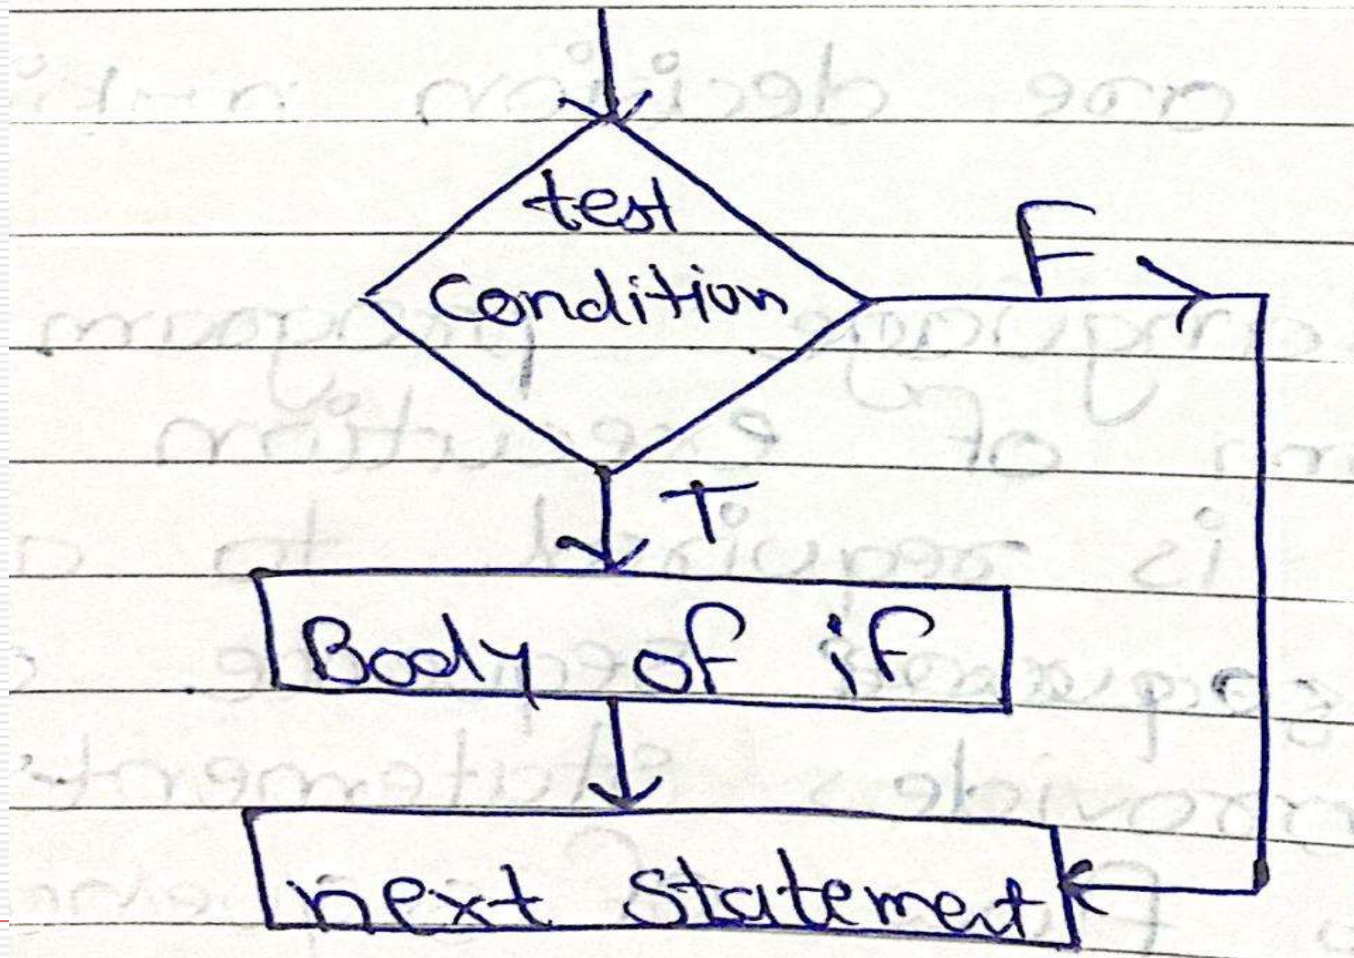 test
Condition
F
T
Body of if
next statement